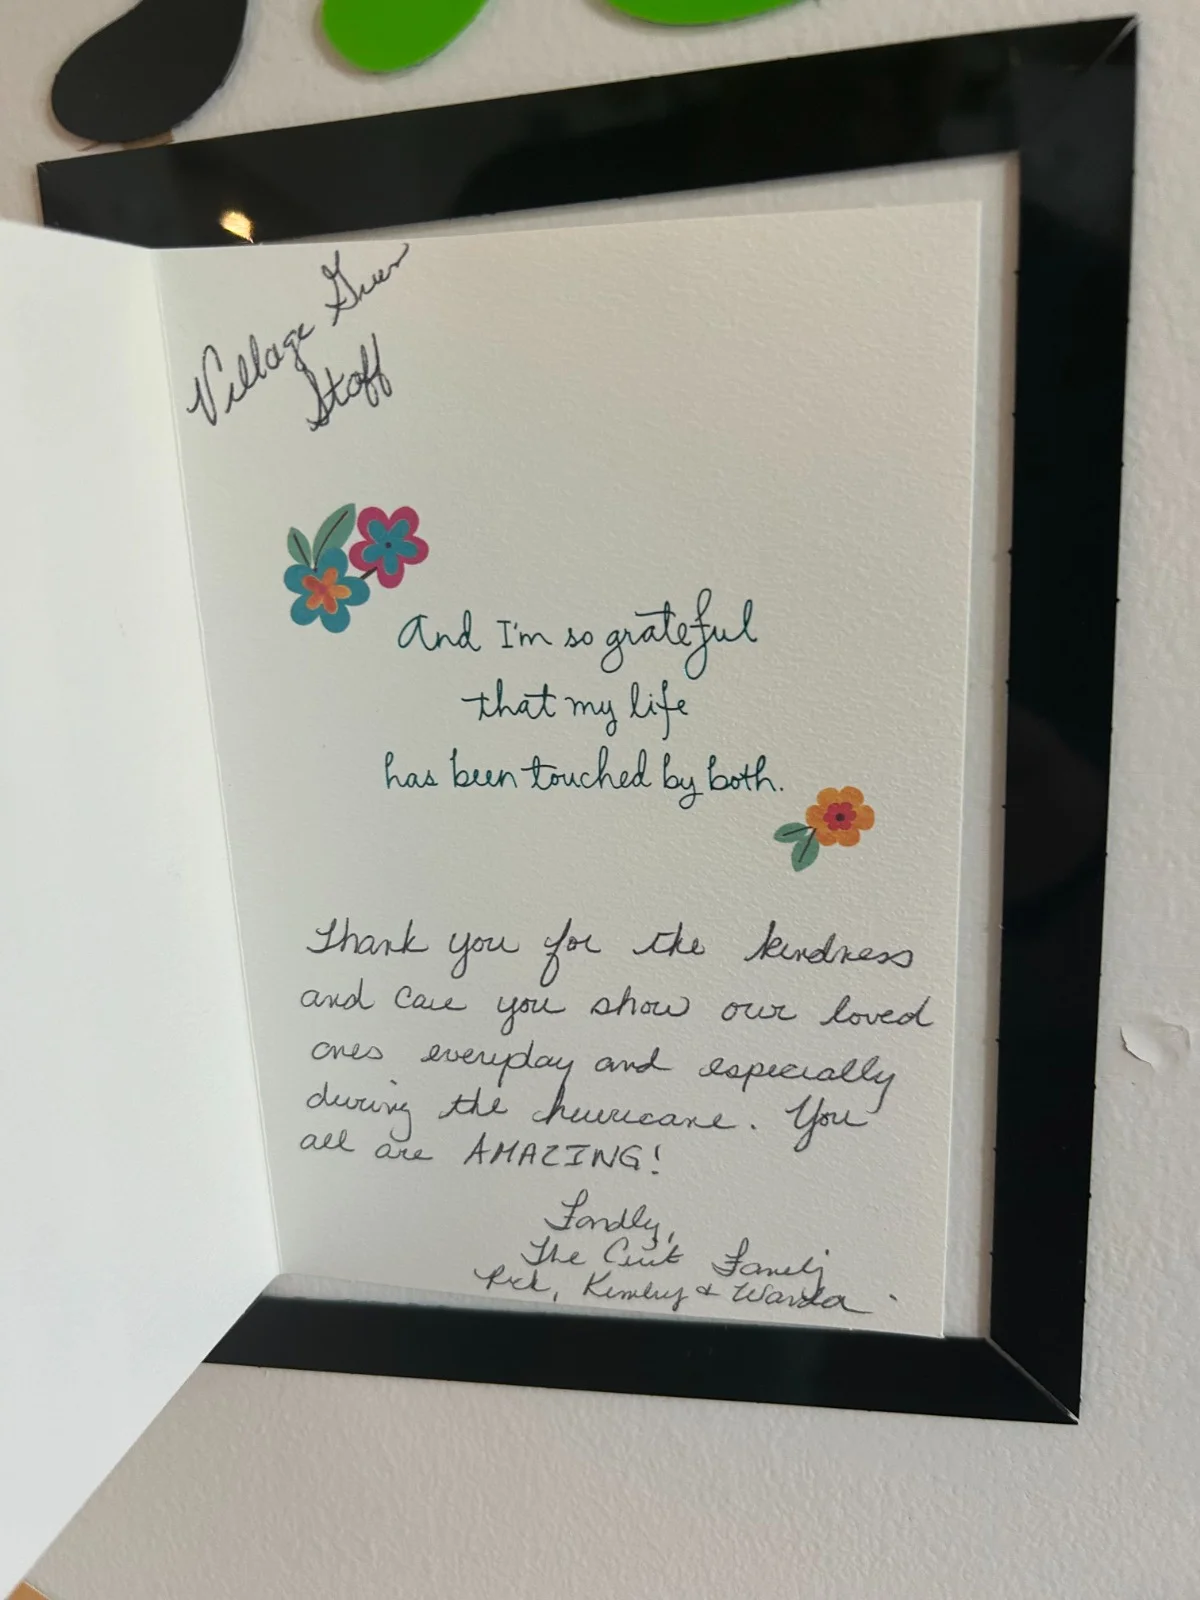 Village Green
Staff
And I'm so grateful
that my life
has been touched by both.
Thank you for the kindness
and care you show our loved
ones everyday and especially
during the hurricane. You
all are AMAZING!
Fondly,
The Family
Rick, & Wanda